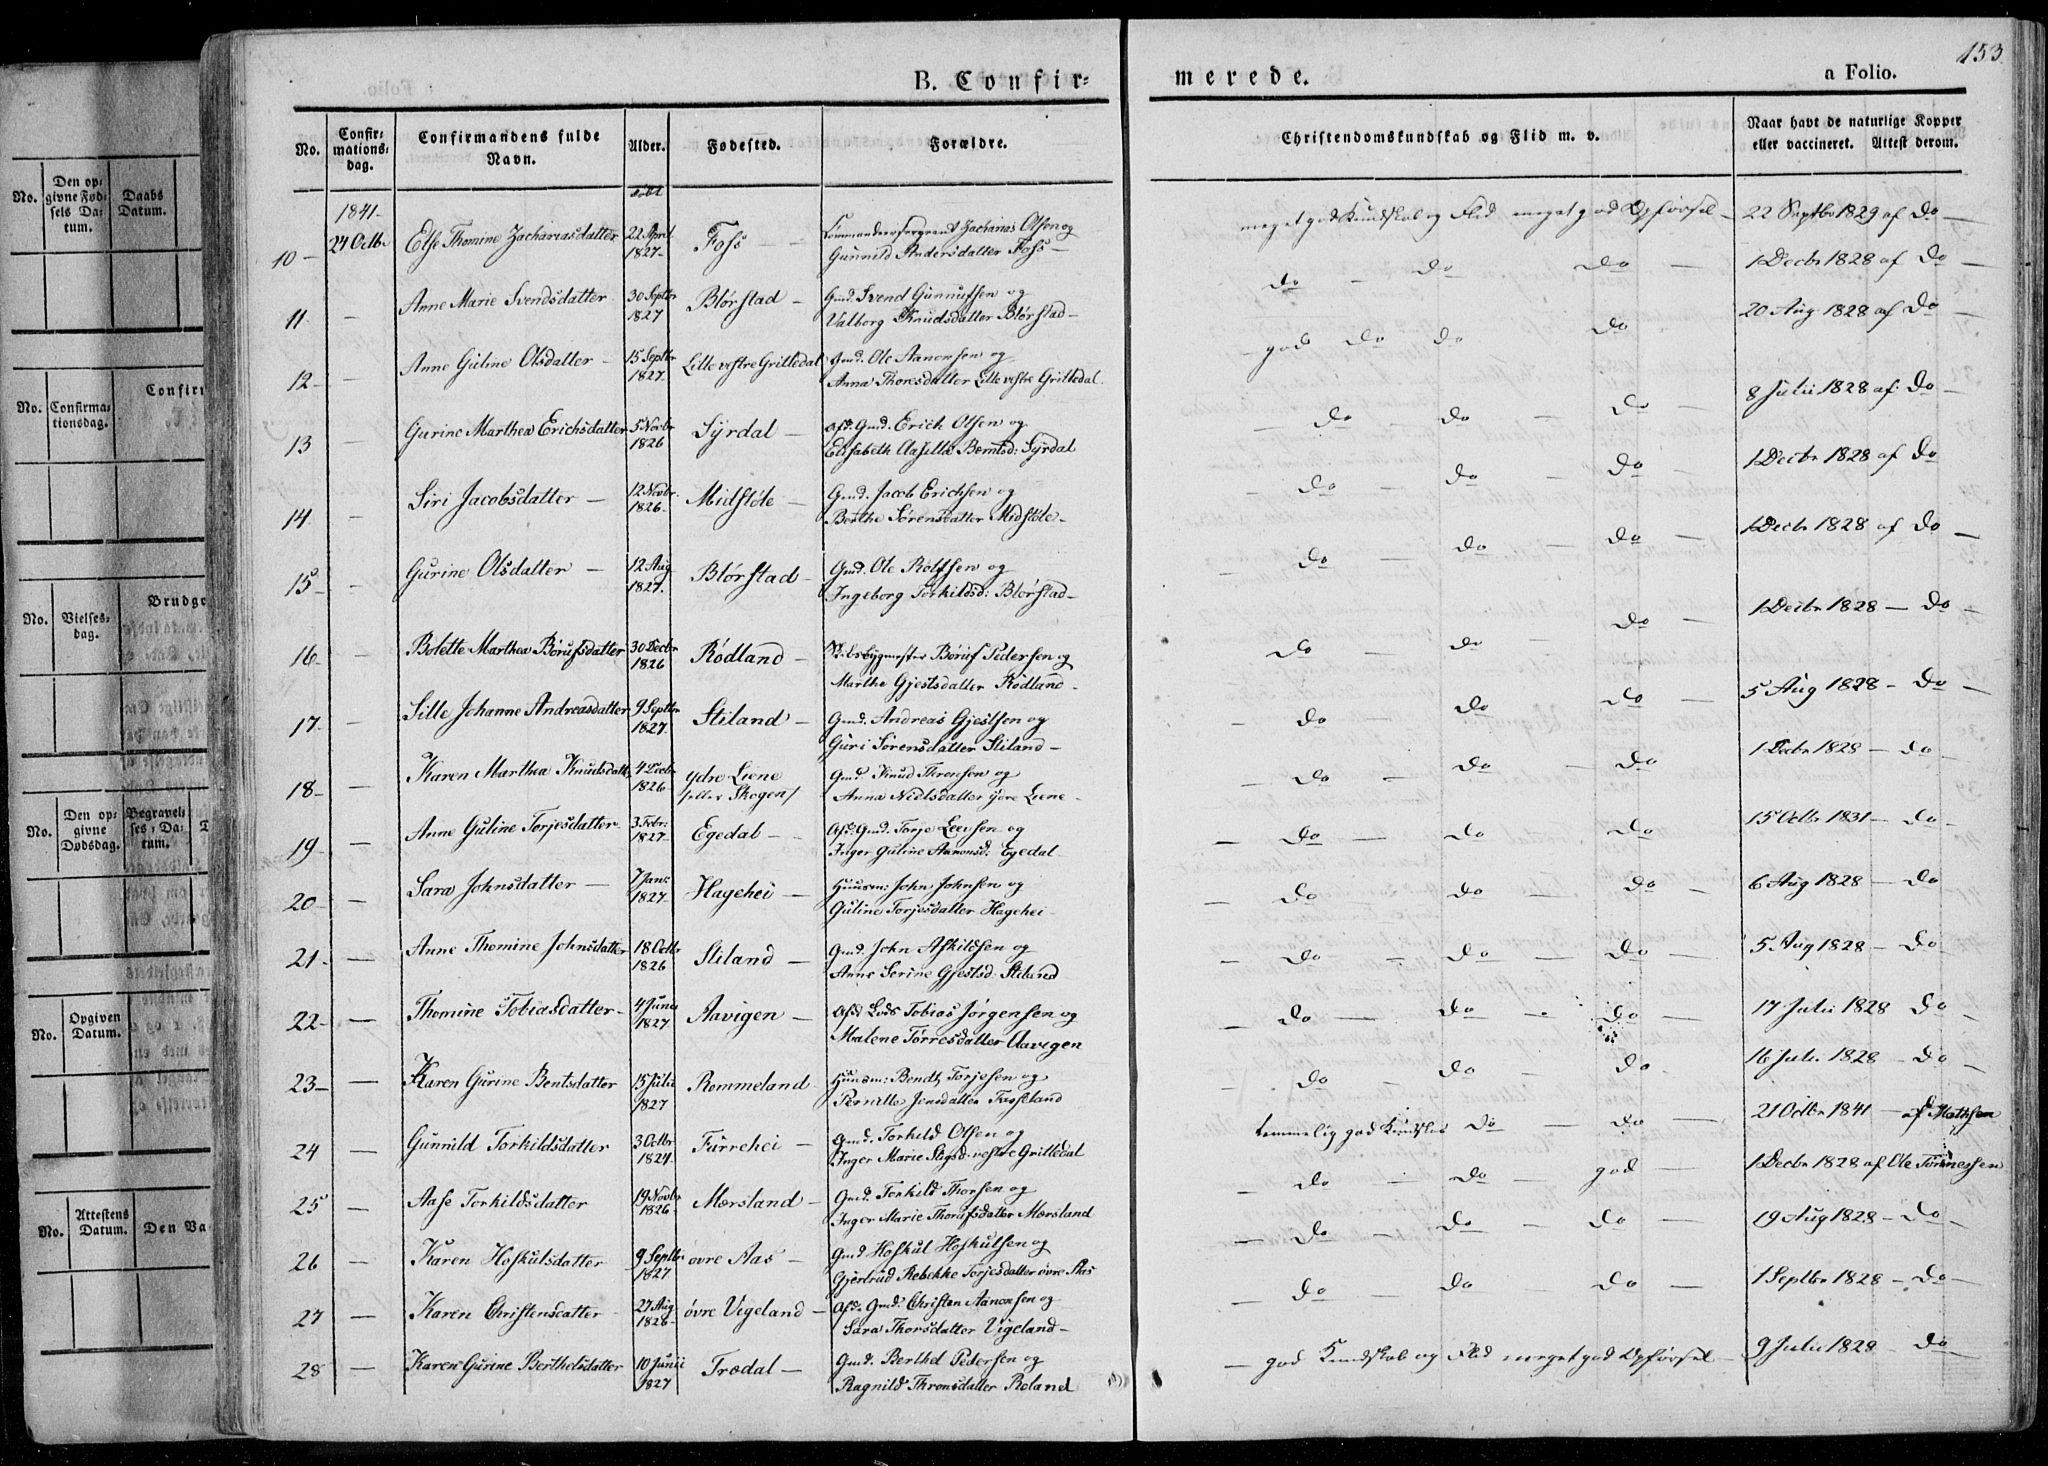 153
B. Confir-
merede.
a Folio.
No.
Confir-
mations-
dag.
Confirmandens fulde
Navn.
Alder.
Fødested.
Forældre.
Christendomskundskab og Flid m. v.
Naar havt de naturlige Kopper
eller vaccineret. Attest derom.
døbt
1841-
10 - 24 Octbr Else Thomine Zachariasdatter 22 April 1827- Foss - Zacharias Olsen og
Gunnild Andersdatter Foss - meget god Kundskab og Flid meget god Opførsel - 22 Septbr 1829 af Do -
11. - Anne Marie Svendsdatter 30 Septbr 1827 Blørstad - Gmd. Svend Gunnufsen og
Valborg Knudsdatter Blørstad - Do - Do Do - 1 Decbr 1828 af Do -
12 - - Anne Guline Olsdatter - 15 Septbr 1827. Lille vestre Gritledal Gmd. Ole Aanonsen og
Anna Thoresdatter Lille vestre Gritledal. - god Do Do Do 20 Aug 1828 af Do -
13 - Gurine Marthea Erichsdatter 5 Novbr 1826 Syrdal - Afd. Gmd. Erich Olsen og
Elisabeth Aasille Berntsd: Syrdal - Do Do - Do - 8 Julii 1828 af Do -
14. - Siri Jacobsdatter - 12 Novbr. 1826- Midstøe - Gmd. Jacob Erichsen og
Berthe Sørensdatter Midstøe - - Do - Do Do 1 Decbr 1828 af Do
15 - - Gurine Olsdatter - 12 Aug 1827. Blørstad - Gmd. Ole Rolfsen og
Ingeborg Torkildsd: Blørstad - - Do - Do - Do - 1 Decbr 1828 af Do -
16 - - Bolette Marthea Børufsdatter 30 Decbr 1826 Rødland - Børuf Pedersen og
Marthe Gjestsdatter Rødland - Do - Do Do - 1 Decbr 1828 - Do -
17 - - Sille Johanne Andreasdatter 9 Septbr 1827. Stiland - Gmd. Andreas Gjestsen og
Guri Sørensdatter Stiland - - Do - Do Do - 5 Aug 1828 - Do -
18 - - Karen Marthea Knudsdatt 4 Decbr 1826- Ydre Liene
/eller Skogen/ Gmd. Knud Thronsen og
Anna Nielsdatter ydre Liene - - Do - Do - Do 1 Decbr 1828 - Do -
19 - - Anne Guline Torjesdatter - 3 Febr: 1827- Egedal - Afd: Gmd. Torje Leevsen og
Inger Guline Aanonsd: Egedal - - Do - Do - Do 15 Octbr 1831 - Do -
20 - - Sara Johnsdatter - 7 Janr: 1827- Hagehei - Huusm: John Johnsen og
Guline Torjesdatter Hagehei - - Do - Do Do - 6 Aug 1828 - Do
21 - - Anne Thomine Johnsdatter 18 Octbr 1826 Stiland - Gmd. John Askildsen og
Anne Serine Gjestsd: Stiland - Do - Do - Do - 5 Aug 1828 - Do -
22 - - Thomine Tobiasdatter - 4 Junii 1827 Aavigen - Afd Lods Tobias Jørgensen og
Malene Tørresdatter Aavigen - Do - Do - Do - 17 Julii 1828 Do -
23 - - Karen Gurine Bentsdatter 15 Julii 1827 Rommeland - Huusm: Bendt Torjesen og
Pernille Jensdatter Fasseland - Do - Do - Do 16 Juli. 1828 - Do -
24 - Gunnild Torkildsdatter 3 Octbr 1824 Furrehei - Gmd. Torkild Olsen og
Inger Marie Stigsd. vestre Gritledal temmelig god Kundskab Do - Do - 21 Octbr 1841 - af Mathsen
25 - Aase Torkildsdatter 19 Novbr 1826- Mærsland - Gmd. Torkild Thorsen og
Inger Marie Thorufsdatter Mærsland - Do - Do - god - 1 Decbr 1828 af Ole Tønnessen
26 - Karen Hoskulsdatter 9 Septbr 1827 øvre Aas - Gmd Hoskul Hoskulsen og
Gjertrud Rebekke Torjesdatter øvre Aas - Do - Do - Do - 19 Aug 1828 - Do -
27 - Karen Christensdatter - 27 Aug 1826- øvre Vigeland - Afd. Gmd: Christen Aanonsen og
Sara Thorsdatter Vigeland - - Do - Do - Do - 1 Septbr 1828 - Do -
28 - Karen Gurine Berthelsdatter 10 Junii 1827 Trædal - Gmd. Berthel Pedersen og
Ragnild Thronsdatter Reland - god Kundskab og Flid meget god Opførsel - 9 Julii 1828 - Do
No.
Den op-
givne Fød-
sels Da-
tum.
Daabs
Datum.
No.
Confirma-
tionsdag.
Confirm
No.
Vielses-
dag.
Brudge
No.
Den op-
givne
Dødsdag.
Begravel-
ses-Da-
tum.
No.
Opgiven
Datum.
No.
Attestens
Datum.
Den Va